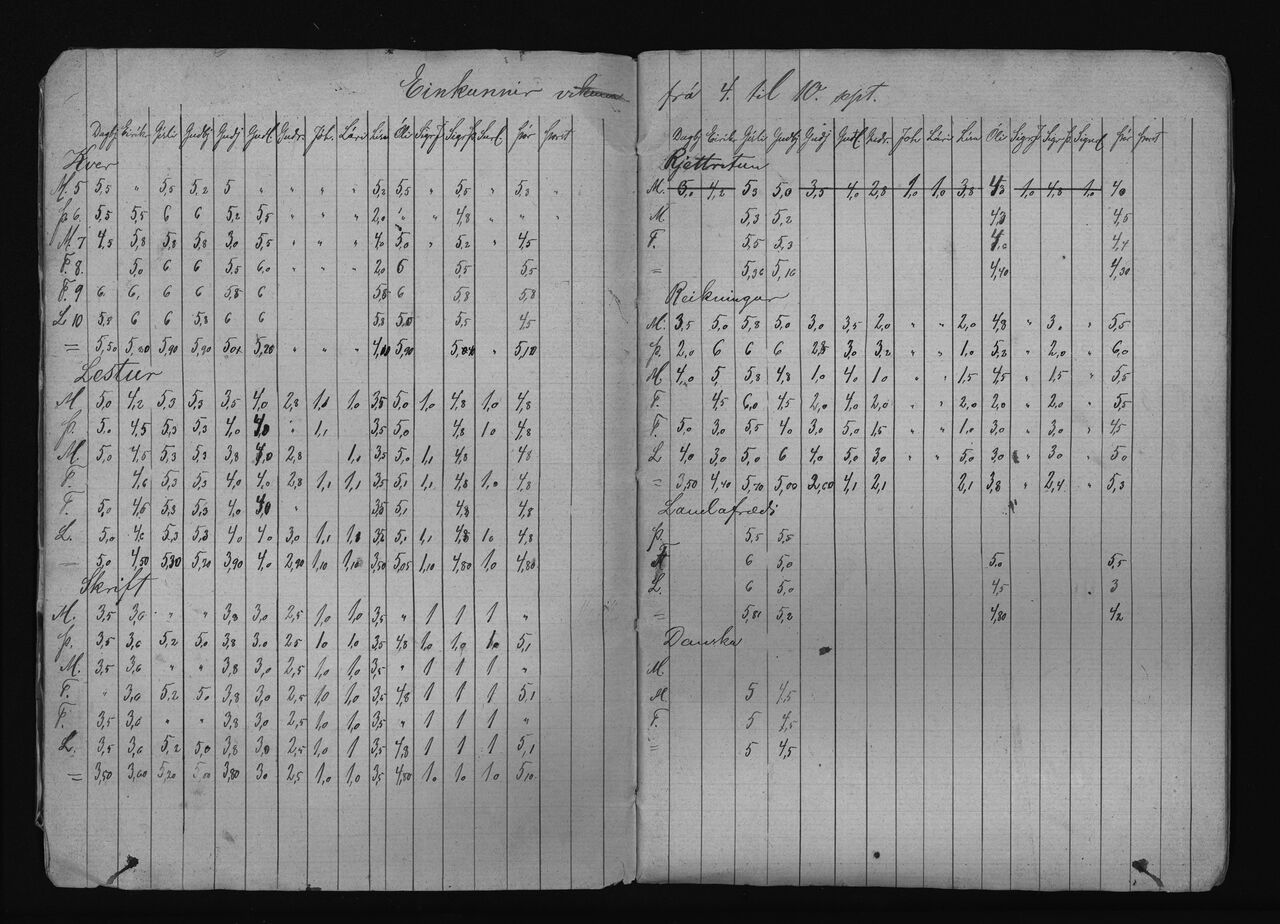 Einkunnir
Dagbj Eirik Gísli Gudbj Gudj Gudl Gudr. Joh. Lár Linn Óli Sigr J Sigr Þ Þór Þorst
Kver
M. 5 5,5 " 5,5 5,2 5 " " " " 5,2 5,5 " 5,5 " 5,3 "
Þ 6. 5,5 5,5 6 6 5,2 5,5 " " " 2,0 " 4,8 " " "
M. 7 4,5 5,8 5,8 5,8 3,0 5,5 " " " 4,0 5,0 " 5,2 " 4,5
F. 8. 5,0 6 6 5,5 6,0 " " " 2,0 6 5,5 5,5
F. 9 6, 6, 6 6 5,8 6 5,8 6 5,8 5,8
L 10 5,5 6 6 5,8 6 6 5,8 5,0 5,5 4,5
= 5,50 5,80 5,90 5,90 5,20 " " " 5,90 " 5,10
Lestur
M. 5,0 4,2 5,3 5,3 3,5 4,0 2,8 1,1 1,0 3,5 5,0 1,0 4,8 1,0 4,8
Þ. 5,0 4,5 5,3 5,3 4,0 4,0 " 1,1 3,5 5,0 4,8 1,0 4,8
M. 5,0 4,5 5,3 5,3 3,8 4,0 2,8 1,0 3,5 5,0 1,1 4,8 4,8
F. 4,6 5,3 5,3 4,0 4,0 2,8 1,1 1,1 3,5 5,1 1,1 4,8 1,0 4,8
F. 5,0 4,5 5,3 5,3 4,0 4,0 3,5 5,1 4,8 4,8
L. 5,0 4,6 5,3 5,3 4,0 4,0 3,0 1,1 1,1 3,5 5,1 1,1 4,8 1,0 4,8
= 5,0 4,50 5,30 5,20 3,90 4,0 2,90 1,10 1,10 3,50 5,05 1,10 4,80 1,0 4,80
Skrift
M. 3,5 3,6 " " 3,8 3,0 2,5 1,0 1,0 3,5 " 1 1 1 "
Þ. 3,5 3,6 5,2 5,0 3,8 3,0 2,5 1,0 1,0 3,5 4,8 1,0 1,0 1,0 5,1
M. 3,5 3,6 " " 3,8 3,0 2,5 1,0 1,0 3,5 " 1 1 1 "
F. " 3,6 5,2 5,0 3,8 3,0 2,5 1,0 1,0 3,5 4,8 1 1 1 5,1
F. 3,5 3,6 " " 3,8 3,0 2,5 1,0 1,0 3,5 " 1 1 1 "
L. 3,5 3,6 5,2 5,0 3,8 3,0 2,5 1,0 1 3,5 4,8 1 1 1 5,1
= 3,50 3,60 5,20 3,80 3,0 2,5 1,0 1,0 3,5 4,80 1,0 1,0 1,0 5,10
frá 4. til 10. sept.
Dagbj Eirik Gísli Gudbj Gudj Gudl Gudr. Joh Lár Linn Óli Sigr J Sigr Þ. Þór Þorst
Rjettritun
M. 3,0 4,2 5,3 5,0 3,5 4,0 2,8 1,0 1,0 3,8 4,3 1,0 4,8 1,0 4,0
M 5,3 5,2 4,3 4,5
F. 5,5 5,3 4,0 4,4
= 5,36 5,16 4,40 4,30
Reikningur
M. 3,5 5,0 5,8 5,0 3,0 3,5 2,0 " " 2,0 4,8 " 3,0 " 5,5
Þ. 2,0 6 6 6 3,0 3,2 " " 1,0 5,2 " 2,0 " 6,0
M 4,0 5, 5,8 4,8 1,0 4,0 1,0 " " 1,5 4,5 " 1,5 " 5,5
F. 4,5 6,0 4,5 2,0 4,0 2,0 " " 2,0 2,0 " 2,0 " 5,5
F. 5,0 3,0 5,5 4,0 3,0 5,0 1,5 " " 1,0 3,0 " 3,0 " 4,5
L 4,0 3,0 5,0 6 4,0 5,0 3,0 " " 5,0 3,0 " 3,0 " 5,0
= 3,50 4,40 5,70 5,00 4,1 2,1 2,1 3,8 " 2,4 " 5,3
Landafrædi
Þ. 5,5 5,5
6 5,0 5,0 5,5
L. 6 5,0 4,5 3
= 5,81 5,2 4,80 4,2
Danska
M.
M 5 4,5
F. 5 4,5
= 5 4,5